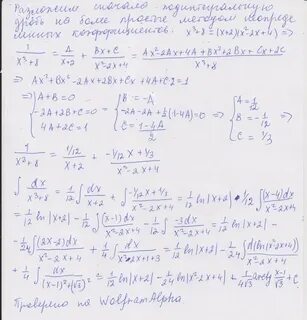 Разложим сначала подинтегральную
дробь на более простые методом неопреде-
лённых коэффициентов: x³+8=(x+2)(x²-2x+4) ⇒
1/(x³+8) = A/(x+2) + (Bx+C)/(x²-2x+4) = (Ax²-2Ax+4A+Bx²+2Bx+Cx+2C)/(x³+8)
⇒ Ax²+Bx²-2Ax+2Bx+Cx+4A+2C=1
⇒ {A+B=0 -2A+2B+C=0 4A+2C=1 ⇒ {B=-A -2A-2A+½(1-4A)=0 C=(1-4A)/2 ⇒ {A=1/12 B=-1/12 C=1/3 ⇒
1/(x³+8) = (1/12)/(x+2) + (-1/12x+1/3)/(x²-2x+4)
∫dx/(x³+8) = 1/12 ∫dx/(x+2) + ∫(-1/12x+1/3)/(x²-2x+4) = 1/12 ln|x+2| - 1/12 ∫(x-4)dx/(x²-2x+4) =
= 1/12 ln|x+2| - 1/12 ∫(x-1)dx/(x²-2x+4) - 1/12 ∫-3dx/(x²-2x+4) = 1/12 ln|x+2| -
- 1/24 ∫(2x-2)dx/(x²-2x+4) + 1/4 ∫dx/(x²-2x+1+3) = 1/12 ln|x+2| - 1/24 ∫d(ln(x²-2x+4))
+ 1/4 ∫dx/((x-1)²+(√3)²) = 1/12 ln|x+2| - 1/24 ln|x²-2x+4| + 1/(4√3) arctg (x-1)/√3 + C
Проверено на WolframAlpha